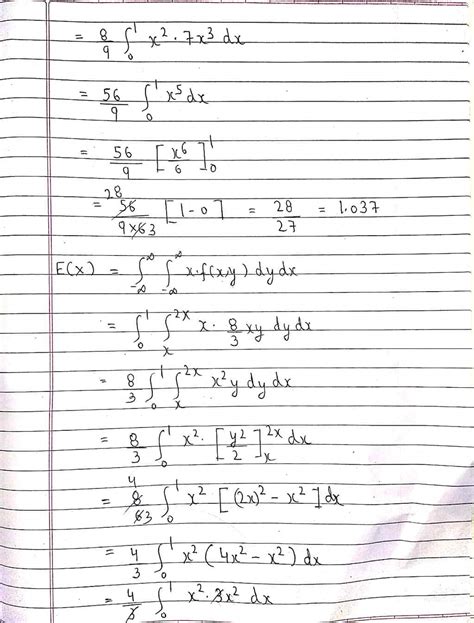 = 8/9 ∫₀¹ x² · 7x³ dx
= 56/9 ∫₀¹ x⁵ dx
= 56/9 [x⁶/6]₀¹
= 28 56/9×63 [1-0] = 28/27 = 1.037
E(x) = ∫₋∞^∞ ∫₋∞^∞ x·f(x,y) dy dx
= ∫₀¹ ∫ₓ^2x x · 8/3 xy dy dx
= 8/3 ∫₀¹ ∫ₓ^2x x²y dy dx
= 8/3 ∫₀¹ x² · [y²/2]ₓ^2x dx
= 4 8/63 ∫₀¹ x² [(2x)² - x²] dx
= 4/3 ∫₀¹ x² (4x² - x²) dx
= 4/3 ∫₀¹ x² · 3x² dx